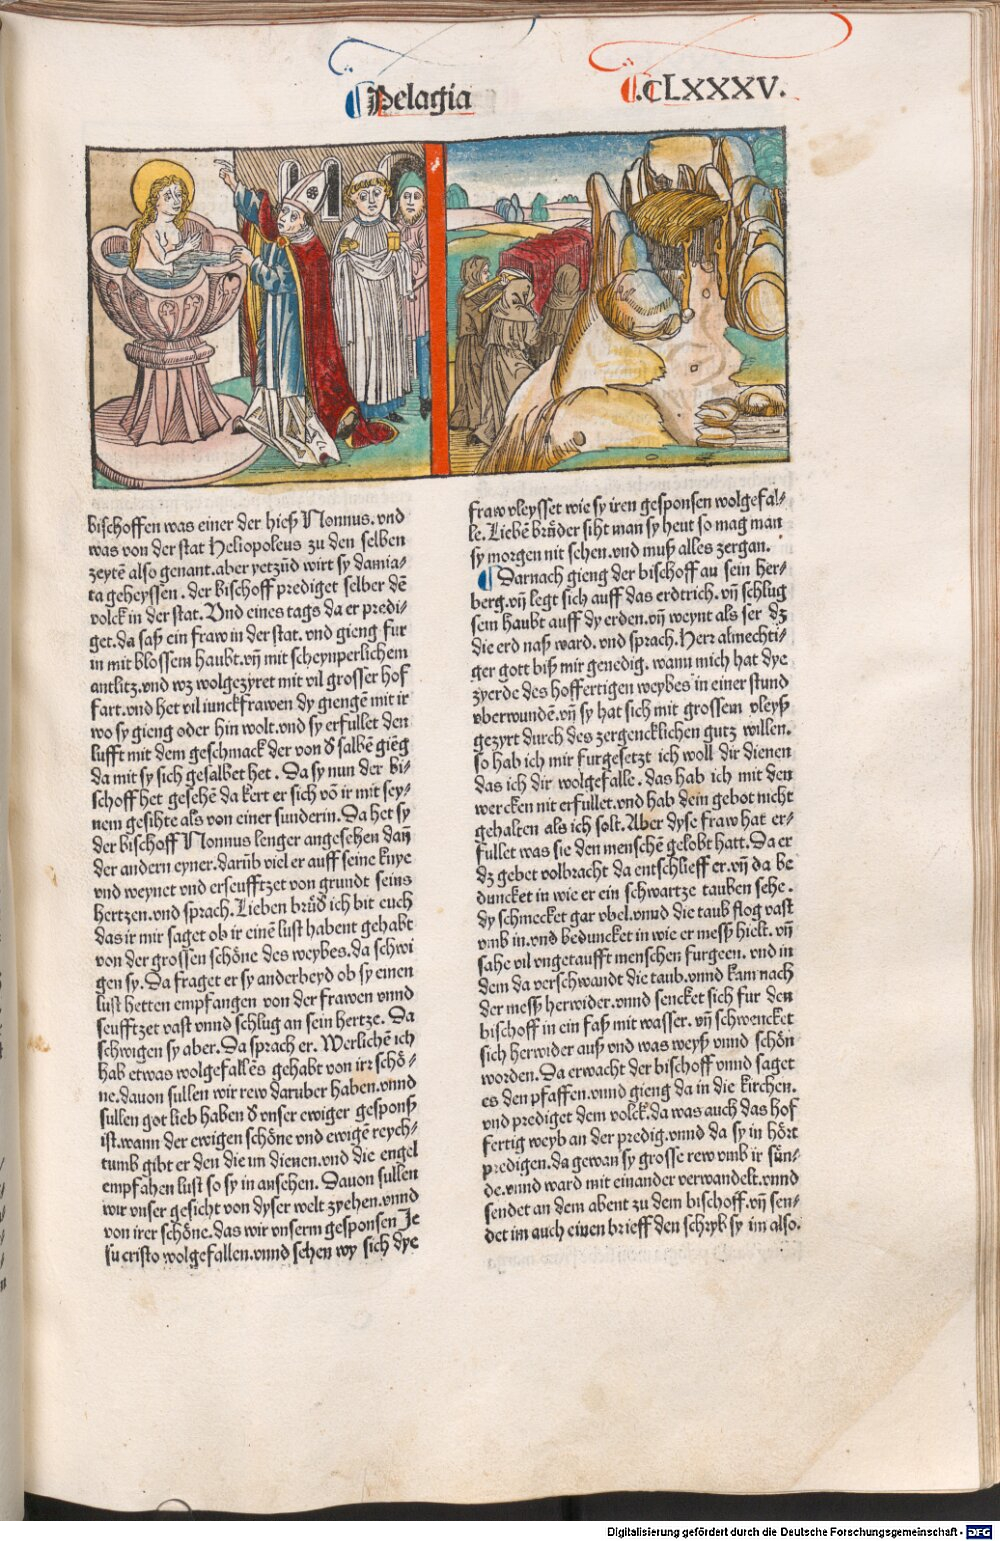 Pelagia
.CLXXXV.
bischoffen was einer der hieß Nonnus. vnd
was von der stat Heliopoleus zu den selben
zeytē also genant. aber yetzūd wirt sy damia-
ta geheyssen. der bischoff prediget selber dē
volck in der stat. Vnd eines tags da er predi-
get. da saß ein fraw in der stat. vnd gieng fur
in mit blossem haubt. vñ mit scheynperlichem
antlitz. vnd wz wolgezyret mit vil grosser hof
fart. vnd het vil iunckfrawen dy giengē mit ir
wo sy gieng oder hin wolt. vnd sy erfullet den
lufft mit dem geschmack der von ð salbē giēg
da mit sy sich gesalbet het. Da sy nun der bi-
schoff het gesehē da kert er sich vō ir mit sey-
nem gesihte als von einer sunderin. Da het sy
der bischoff Nonnus lenger angesehen dañ
der andern eyner. darūb viel er auff seine knye
vnd weynet vnd erseufftzet von grundt seins
hertzen. vnd sprach. Lieben brüð ich bit euch
das ir mir saget ob ir einē lust habent gehabt
von der grossen schöne des weybes. da schwi
gen sy. Da fraget er sy anderbeyd ob sy einen
lust hetten empfangen von der frawen vnnd
seufftzet vast vnnd schlug an sein hertze. Da
schwigen sy aber. Da sprach er. Werlichē ich
hab etwas wolgefallēs gehabt von irr schö-
ne. dauon sullen wir rew daruber haben. vnnd
sullen got lieb haben ð vnser ewiger gesponß
ist. wann der ewigen schöne vnd ewigē reych-
tumb gibt er den die im dienen. vnd die engel
empfahen lust so sy in ansehen. Dauon sullen
wir vnser gesicht von dyser welt zyehen. vnnd
von irer schöne. das wir vnserm gesponsen Je
su cristo wolgefallen. vnnd sehen wy sich dye
fraw vleysset wie sy iren gesponsen wolgefal-
le. Liebē brüder siht man sy heut so mag man
sy morgen nit sehen. vnd muß alles zergan.
Darnach gieng der bischoff an sein her-
berg. vñ legt sich auff das erdtrich. vñ schlug
sein haubt auff dy erden. vñ weynt als ser dz
die erd naß ward. vnd sprach. Herr almechti-
ger gott biß mir genedig. wann mich hat dye
zyerde des hoffertigen weybes in einer stund
vberwundē. vñ sy hat sich mit grossem vleyß
gezyrt durch des zergencklichen gutz willen.
so hab ich mir furgesetzt ich woll dir dienen
das ich dir wolgefalle. das hab ich mit den
wercken nit erfullet. vnd hab dein gebot nicht
gehalten als ich solt. Aber dyse fraw hat er-
fullet was sie den menschē gelobt hatt. Da er
dz gebet volbracht da entschlieff er. vñ da be
duncket in wie er ein schwartze tauben sehe.
dy schmecket gar vbel. vnnd die taub flog vast
vmb in. vnd beduncket in wie er messz hielt. vñ
sahe vil vngetaufft menschen furgeen. vnd in
dem da verschwandt die taub. vnnd kam nach
der messz herwider. vnnd sencket sich fur den
bischoff in ein faß mit wasser. vñ schwencket
sich herwider auß vnd was weyß vnnd schön
worden. Da erwacht der bischoff vnnd saget
es den pfaffen. vnnd gieng da in die kirchen.
vnd prediget dem volck. da was auch das hof
fertig weyb an der predig. vnnd da sy in hört
predigen. da gewan sy grosse rew vmb ir sün-
de. vnnd ward mit einander verwandelt. vnnd
sendet an dem abent zu dem bischoff. vñ sen-
det im auch einen brieff den schryb sy im also.
Digitalisierung gefördert durch die Deutsche Forschungsgemeinschaft - DFG